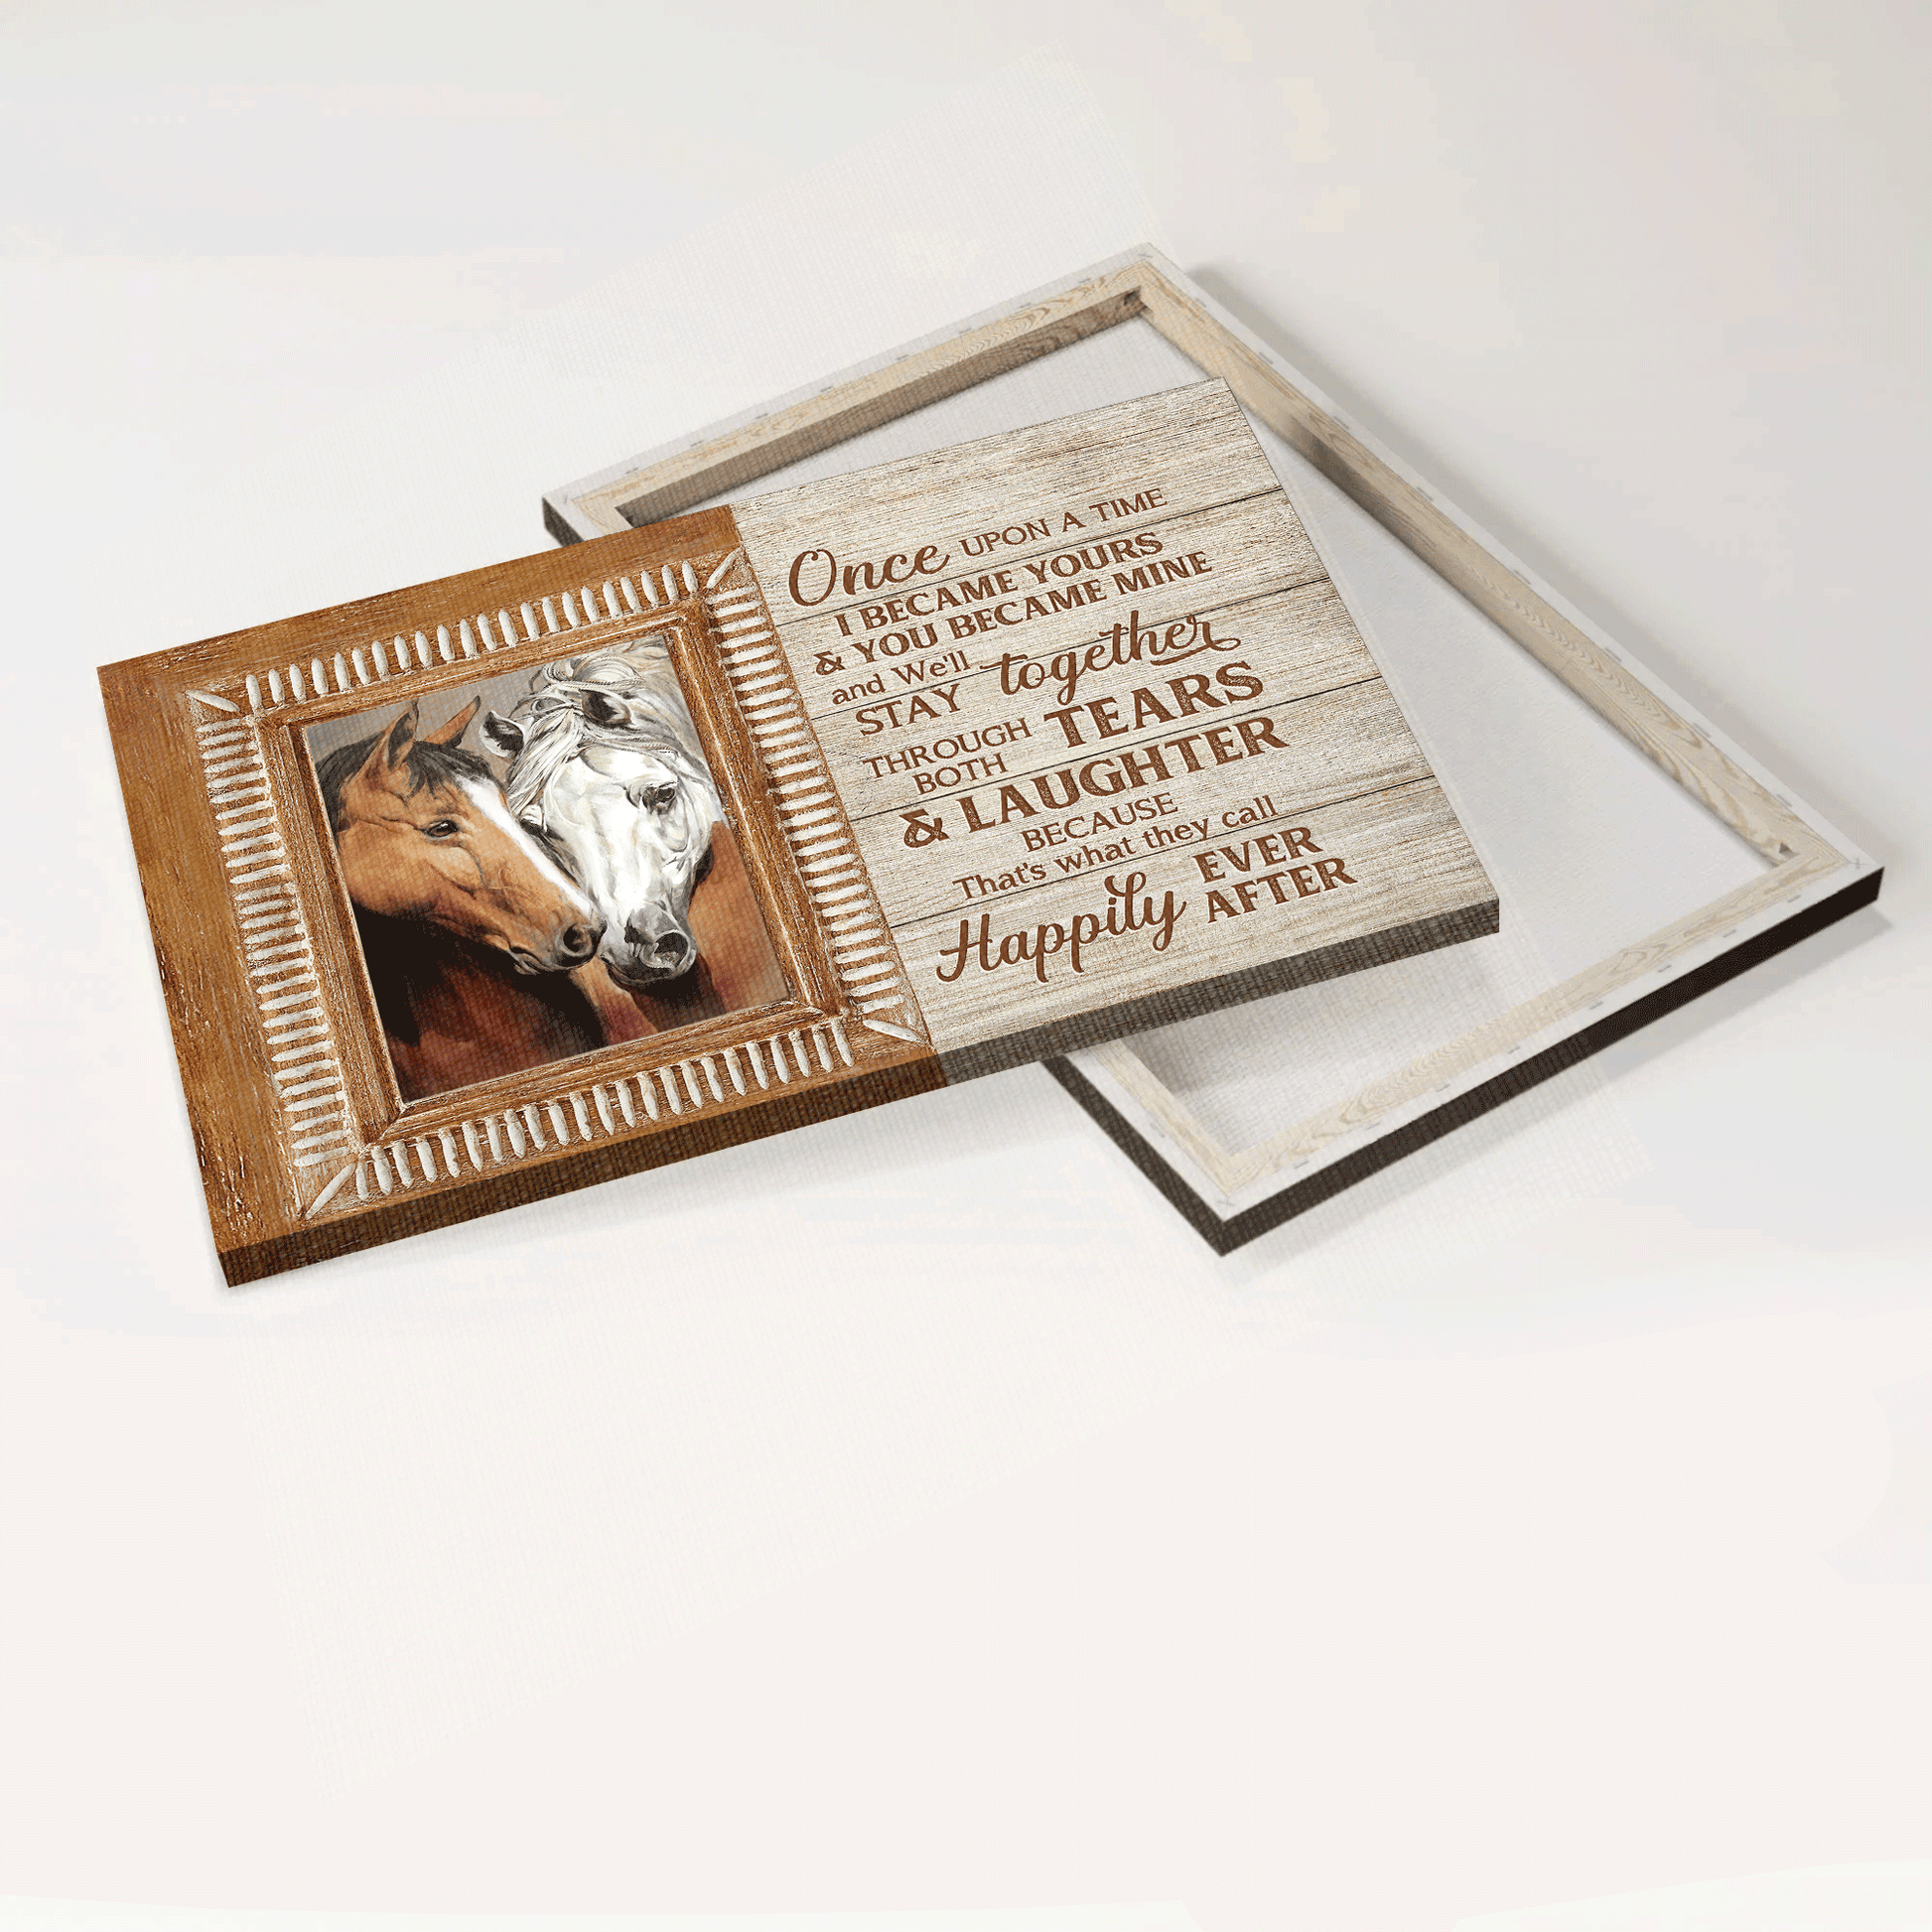 Once UPON A TIME
I BECAME YOURS
& YOU BECAME MINE
and We'll
STAY together
THROUGH
BOTH TEARS
& LAUGHTER
BECAUSE
That's what they call
Happily EVER
AFTER